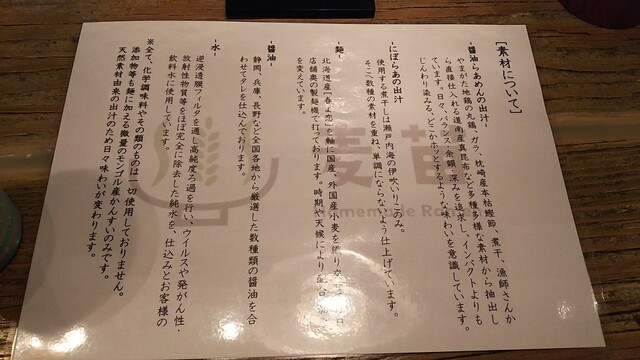 【素材について】
-醤油らあめんの出汁-
やまがた地鶏の丸鶏、ガラ、枕崎産本枯鰹節、煮干、漁師さんか
ら直接仕入れる道南産真昆布など多種多様な素材から抽出し
ています。日々、バランス、余韻、深みを追求し、インパクトよりも
じんわり染みる、どこかホッとするような味わいを意識しています。
-にぼらあの出汁-
使用する煮干しは瀬戸内海の伊吹いりこのみ。
そこへ数種の素材を重ね、単調にならないよう仕上げています。
-麺-
北海道産【春よ恋】を軸に国産、外国産小麦を
店舗奥の製麺機で打っております。時期や天候により
を変えています。
-醤油-
静岡、兵庫、長野など全国各地から厳選した数種類の醤油を合
わせてタレを仕込んでおります。
-水-
逆浸透膜フィルタを通し高純度ろ過を行い、ウイルスや発がん性・
放射性物質等をほぼ完全に除去した純水を、仕込みとお客様の
飲料水に使用しています。
※全て、化学調味料やその類のものは一切使用しておりません。
添加物等も麺に加える微量のモンゴル産かんすいのみです。
天然素材由来の出汁のため日々味わいが変わります。
麦苗
Homemade Ra